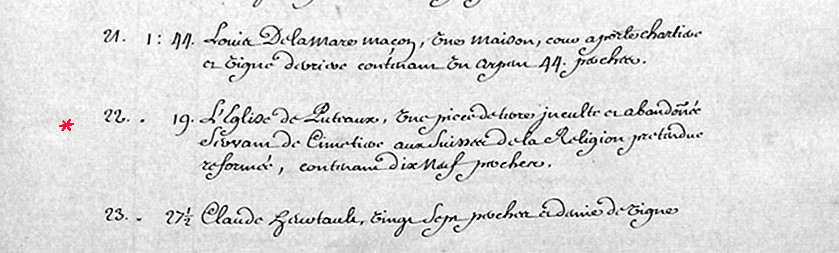 21. 1: 44. Louis Delamare maçon, Une Maison, cour a porte chartiere
et Vigne derriere contenant Un arpen 44. perches.
22. . 19. L'Eglise de Puteaux, Une piece de terre jnculte et abandonnée
Servant de Cimetiere aux Suisses de la Religion pretendue
reformée, contenant dix Neuf perches.
23. . 27½ Claude vingt Sept perches et demie de Vigne